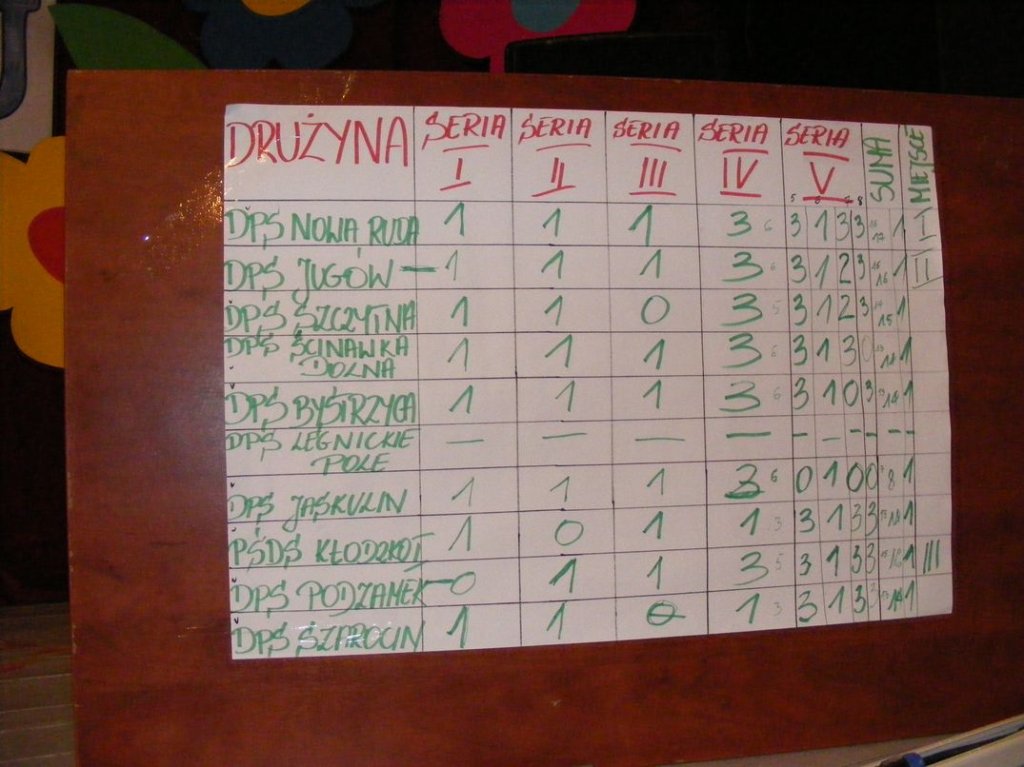 DRUŻYNA SERIA I SERIA II SERIA III SERIA IV SERIA V SUMA MIEJSCE
DPS NOWA RUDA 1 1 1 3 6 3 1 3 3 17 1 I
DPS JUGÓW 1 1 1 3 6 3 1 2 3 16 1 II
DPS SZCZYTNA 1 1 0 3 5 3 1 2 3 15 1
DPS ŚCINAWKA
DOLNA 1 1 1 3 6 3 1 3 0 1
DPS BYSTRZYCA 1 1 1 3 6 3 1 0 3 1
DPS LEGNICKIE
POLE – – – – – – – – – –
DPS JASKULIN 1 1 1 3 6 0 1 0 0 8 1
PŚDS KŁODZKO 1 0 1 1 3 3 1 3 3 1
DPS PODZAMEK 0 1 1 3 5 3 1 3 3 1 III
DPS SZAROCIN 1 1 0 1 3 3 1 3 3 14 1